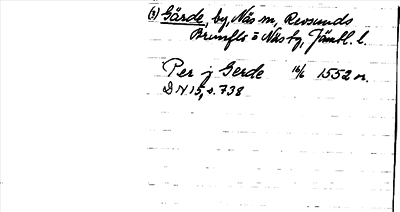 (3) Gärde, by, Näs sn, Revsunds
Brunflo o Näs tg, Jämtl. l.
Per j Gerde 16/6 1552 or.
DN 15, s. 738